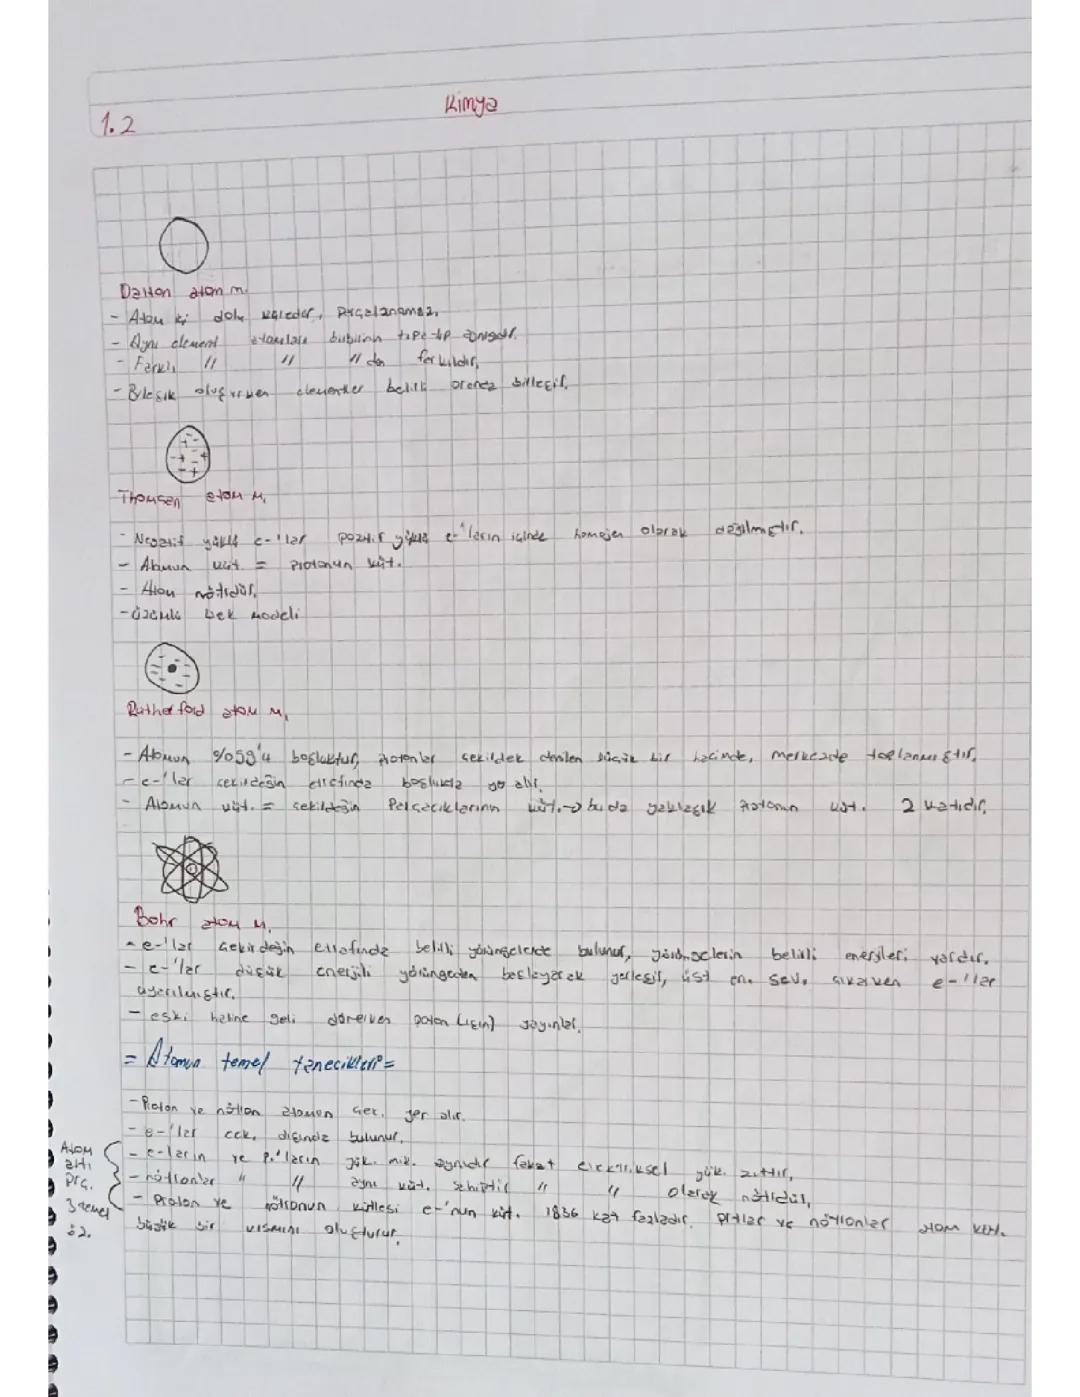 Kimya
1.2
Dalton atom m.
- Atom içi dolu küredir, parçalanamaz.
- Aynı element atomları birbirinin tıpa-tıp aynısıdır.
- Farklı // // // dan farklıdır.
- Bileşik oluşurken elementler belirli oranda birleşir.
Thomson atom m.
- Negatif yüklü e-'lar pozitif yüklü e-'ların içinde homojen olarak dağılmıştır.
- Atomun küt. = protonun küt.
- Atom nötrdür.
- üzümlü kek modeli
Rutherford atom m.
- Atomun %099'u boşluktur, protonlar çekirdek denilen küçük bir hacimde, merkezde toplanmıştır.
- e-'lar çekirdeğin etrafında boşlukta yer alır.
- Atomun küt. = çekirdeğin Parçacıklarının küt. → bu da yaklaşık protonun küt. 2 katıdır.
Bohr atom m.
- e-'lar çekirdeğin etrafında belirli yörüngelerde bulunur, yörüngelerin belirli enerjileri vardır.
- e-'lar düşük enerjili yörüngeden başlayarak yerleşir, üst en. sev. çıkarken e-'lar
uyarılmıştır.
- eski haline geri dönerken foton (ışın) yayınlar.
= Atomun temel tanecikleri =
- Proton ve nötron atomun çek. yer alır.
- e-'lar çek. dışında bulunur.
- e-ların ve p.'ların yük. mik. aynıdır fakat elektriksel yük. zıttır,
- nötronlar // // aynı küt. sahiptir // // olarak nötrdür,
- Proton ve nötronun kütlesi e-'nun küt. 1836 kat fazladır. prtlar ve nötronlar atom küt.
büyük bir kısmını oluşturur.
Atom
altı
prç.
3 temel
öz.